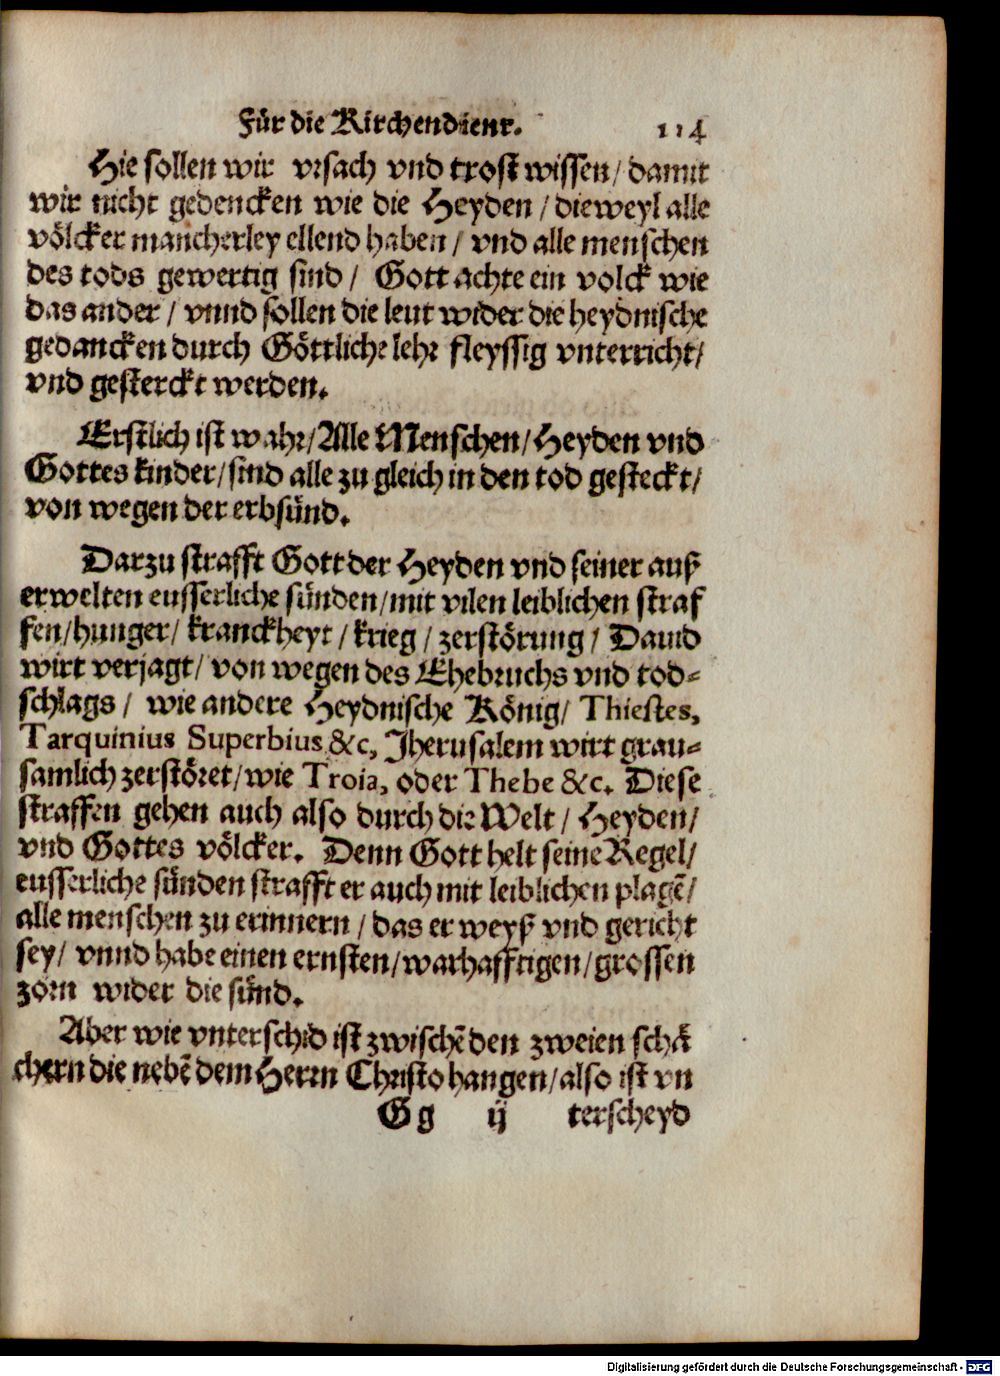 Für die Kirchendienr. 114
Hie sollen wir vrsach vnd trost wissen/ damit
wir nicht gedencken wie die Heyden / dieweyl alle
völcker mancherley ellend haben / vnd alle menschen
des tods gewertig sind / Gott achte ein volck wie
das ander / vnnd sollen die leut wider die heydnische
gedancken durch Göttliche lehr fleyssig vnterricht/
vnd gesterckt werden.
Erstlich ist wahr/Alle Menschen/Heyden vnd
Gottes kinder/sind alle zu gleich in den tod gesteckt/
von wegen der erbsünd.
Darzu strafft Gott der Heyden vnd seiner auß
erwelten eusserliche sünden/mit vilen leiblichen straf
fen/hunger/ kranckheyt / krieg / zerstörung / Dauid
wirt verjagt/ von wegen des Ehebruchs vnd tod-
schlags / wie andere Heydnische König/ Thiestes,
Tarquinius Superbius &c, Jherusalem wirt grau-
samlich zerstöret/wie Troia, oder Thebe &c. Diese
straffen gehen auch also durch die Welt / Heyden/
vnd Gottes völcker. Denn Gott helt seine Regel/
eusserliche sünden strafft er auch mit leiblichen plagē/
alle menschen zu erinnern / das er weyß vnd gericht
sey/ vnnd habe einen ernsten/warhafftigen/grossen
zorn wider die sünd.
Aber wie vnterschid ist zwischē den zweien schä
chern die nebē dem Herrn Christo hangen/also ist vn
Gg ij terscheyd
Digitalisierung gefördert durch die Deutsche Forschungsgemeinschaft - DFG